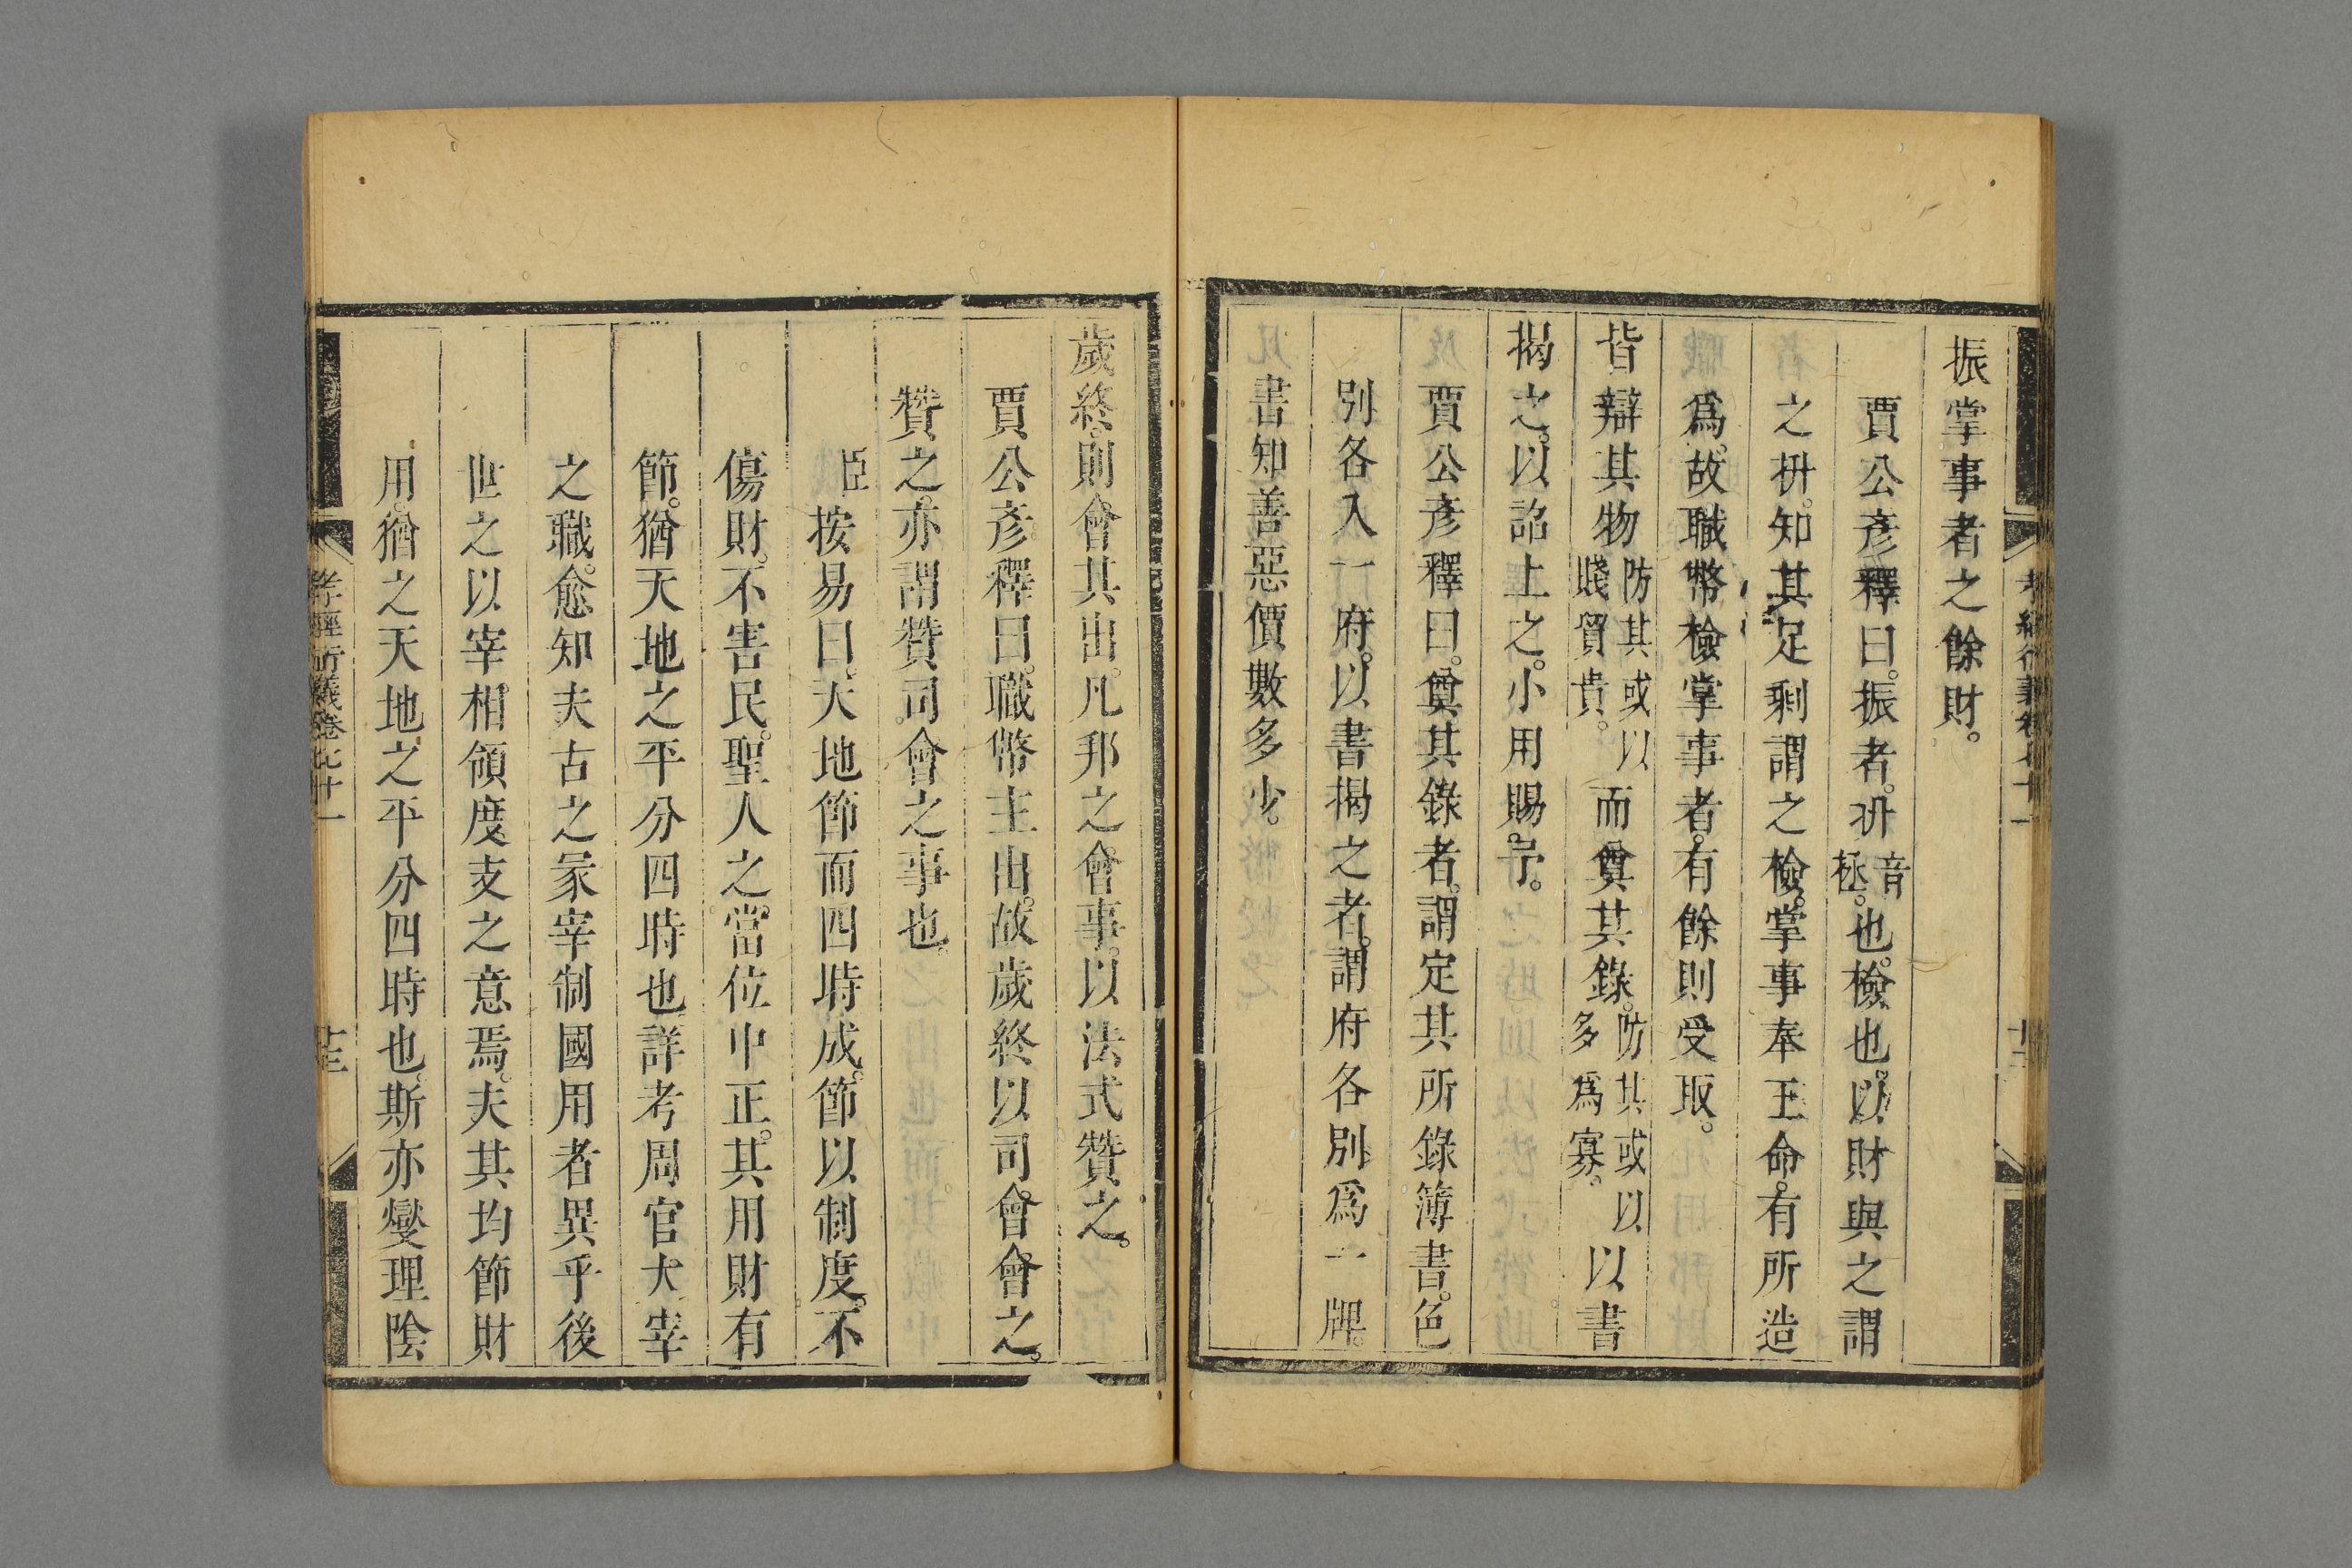 振掌事者之餘財。
賈公彥釋曰。振者。抍音拯。也。檢也。以財與之謂
之抍。知其足剩謂之檢。掌事奉王命。有所造
爲。故職幣檢掌事者。有餘則受取。
皆辯其物防其或以賤貿貴。而奠其錄。防其或以多爲寡。以書
揭之。以詔上之。小用賜。予。
賈公彥釋曰。奠其錄者。謂定其所錄簿書。色
別各入一府。以書揭之者。謂府各別爲一牌。
書知善惡價數多少。
歲終。則會其出。凡邦之會事。以法式贊之。
賈公彥釋曰。職幣主出。故歲終以司會會之。
贊之。亦謂贊司會之事也。
臣按易曰。天地節而四時成。節以制度。不
傷財。不害民。聖人之當位中正。其用財有
節。猶天地之平分四時也。詳考周官大宰
之職。愈知夫古之冢宰制國用者異乎後
世之以宰相領度支之意焉。夫其均節財
用。猶之天地之平分四時也。斯亦燮理陰
孝經衍義卷七十一
十三